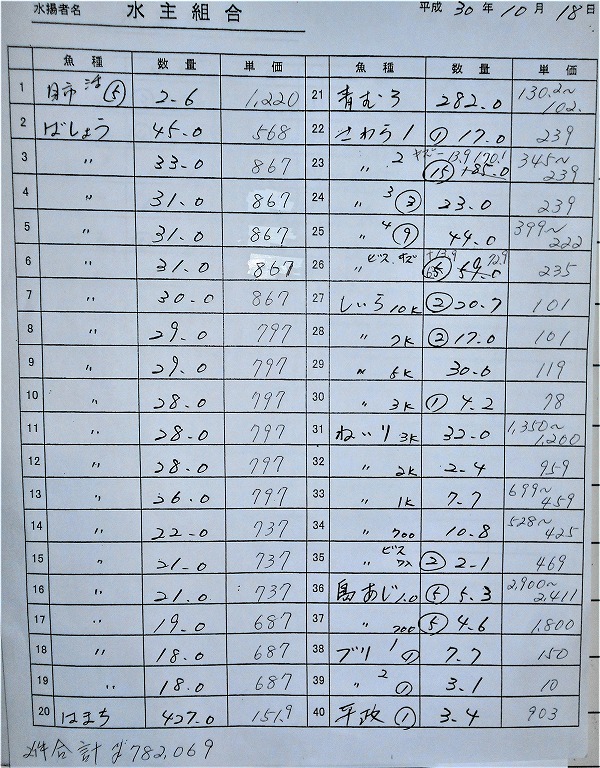 水揚者名 水主組合 平成 30 年 10 月 18 日
魚種 数量 単価 魚種 数量 単価
1 活 ⑤ 2-6 1,220
2 ばしょう 45-0 568
3 〃 33-0 867
4 〃 31-0 867
5 〃 31-0 867
6 〃 31-0 867
7 〃 30-0 867
8 〃 29-0 797
9 〃 29-0 797
10 〃 28-0 797
11 〃 28-0 797
12 〃 28-0 797
13 〃 26-0 797
14 〃 22-0 737
15 〃 21-0 737
16 〃 21-0 737
17 〃 19-0 687
18 〃 18-0 687
19 〃 18-0 687
20 はまち 427-0 151.9
21 青むろ 282-0 130.2~102.
22 さわら 1 ① 17-0 239
23 〃 2 ⑮ 345~239
24 〃 3 ③ 23-0 239
25 〃 4 ⑨ 44-0 399~222
26 〃 ビス 235
27 しいら 10K ② 20-7 101
28 〃 7K ② 17-0 101
29 〃 5K 30-0 119
30 〃 3K ① 4-2 78
31 ねいり 3K 32-0 1,350~1,200
32 〃 2K 2-4 959
33 〃 1K 7-7 699~459
34 〃 700 10-8 528~425
35 〃 ビス ② 2-1 469
36 島あじ 1.0 ⑤ 5-3 2,900~2,411
37 〃 700 ⑤ 4-6 1,800
38 ブリ 1 ① 7-7 150
39 〃 2 ① 3-1 10
40 平政 ① 3-4 903
合計 782,069